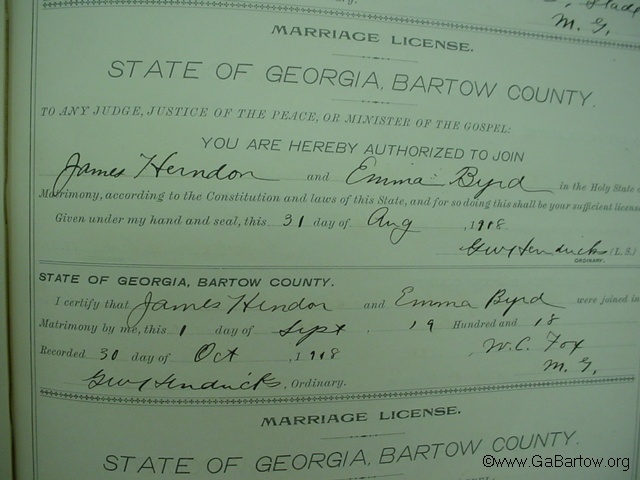 M. G.
MARRIAGE LICENSE.
STATE OF GEORGIA, BARTOW COUNTY.
TO ANY JUDGE, JUSTICE OF THE PEACE, OR MINISTER OF THE GOSPEL:
YOU ARE HEREBY AUTHORIZED TO JOIN
James Herndon and Emma Byrd in the Holy State o
Matrimony, according to the Constitution and laws of this State, and for so doing this shall be your sufficient license
Given under my hand and seal, this 31 day of Aug, 1918.
Gw Hendricks (L. S.)
ORDINARY.
STATE OF GEORGIA, BARTOW COUNTY.
I certify that James Hendon and Emma Byrd were joined in
Matrimony by me, this 1 day of Sept, 19 Hundred and 18
Recorded 30 day of Oct, 1918 W. C. Fox
M. G.
Gw Hendricks, Ordinary.
MARRIAGE LICENSE.
STATE OF GEORGIA, BARTOW COUNTY.
©www.GaBartow.org